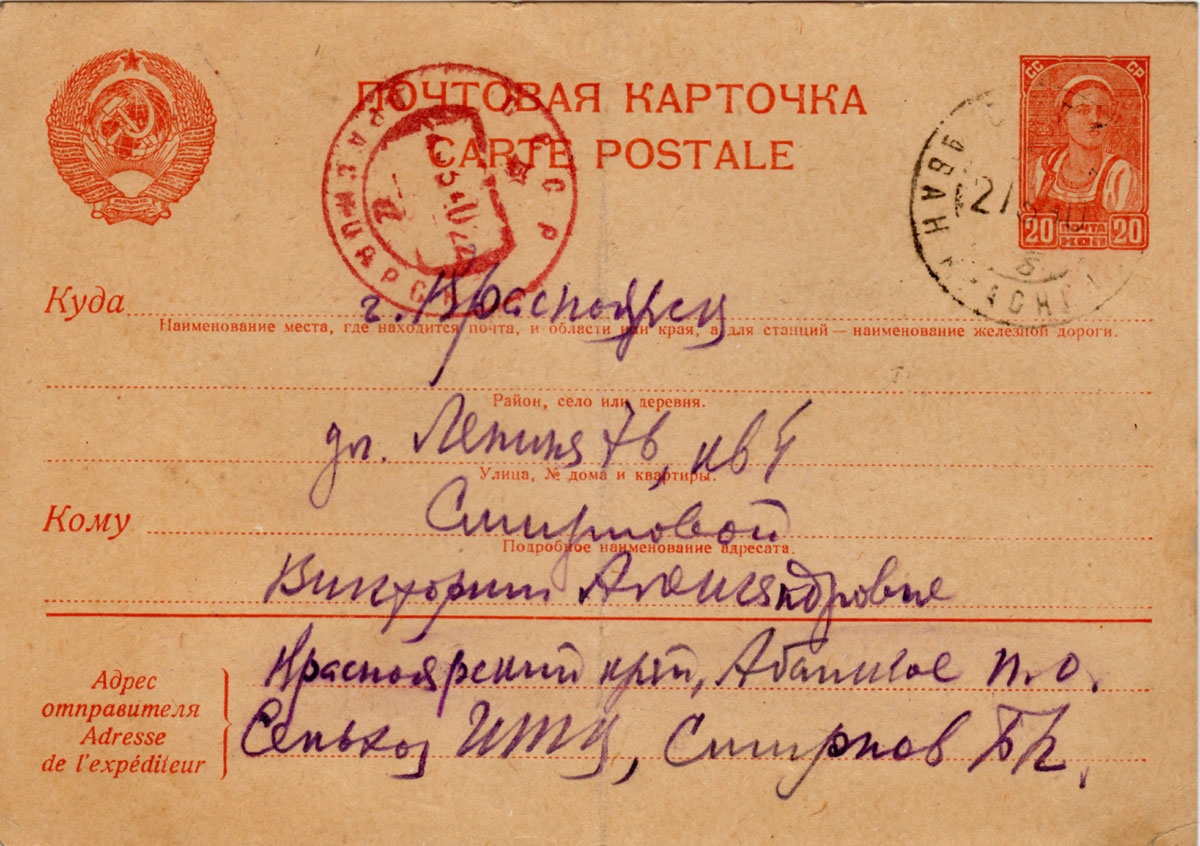 ПОЧТОВАЯ КАРТОЧКА
CARTE POSTALE
СС СР
20 ПОЧТА КОП 20
СССР
КРАСНОЯРСК
Куда г. Красноярск
Наименование места, где находится почта, и области или края, а для станций — наименование железной дороги.
Район, село или деревня.
ул. Ленина 76, кв
Улица, № дома и квартиры.
Кому Смирновой
Подробное наименование адресата.
Виктории Александровне
Адрес
отправителя
Adresse
de l'expéditeur
Красноярский край, Абанское п.о.
Сельхоз ИТК, Смирнов Б.К.